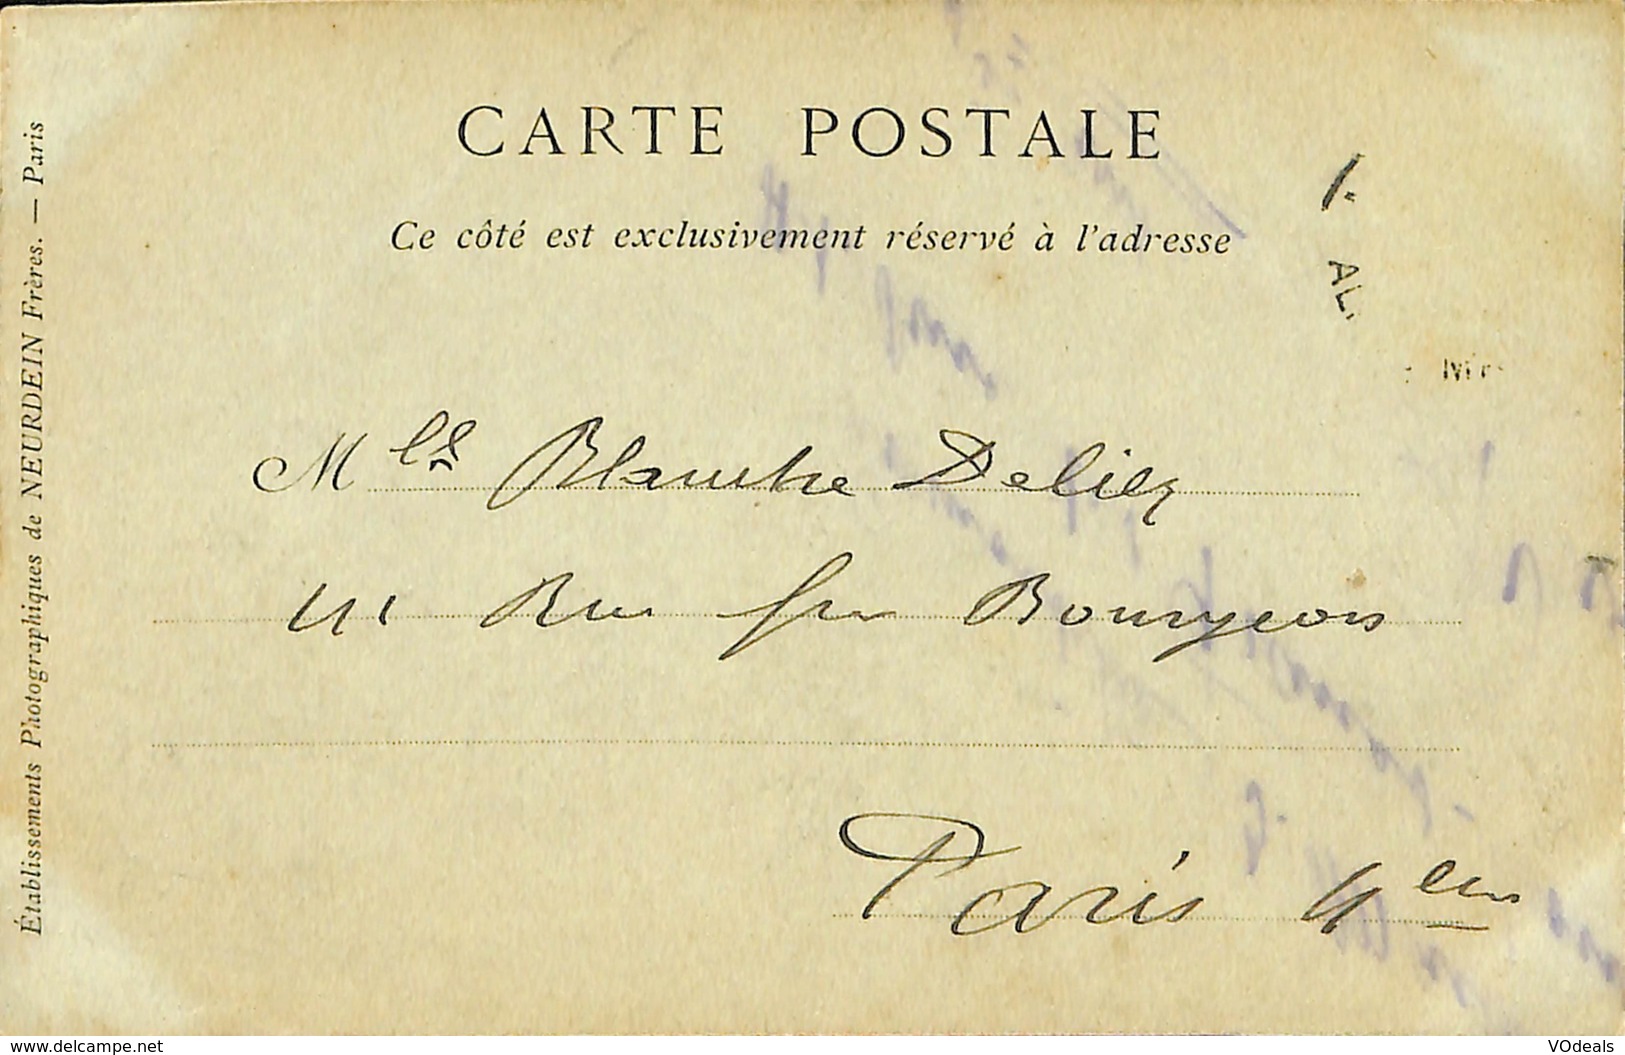 CARTE POSTALE
Ce côté est exclusivement réservé à l'adresse
AL
Mlle Blanche Delier
41 Rue frs Bourgeois
Paris 4em
Établissements Photographiques de NEURDEIN Frères. — Paris
www.delcampe.net
VOdeals